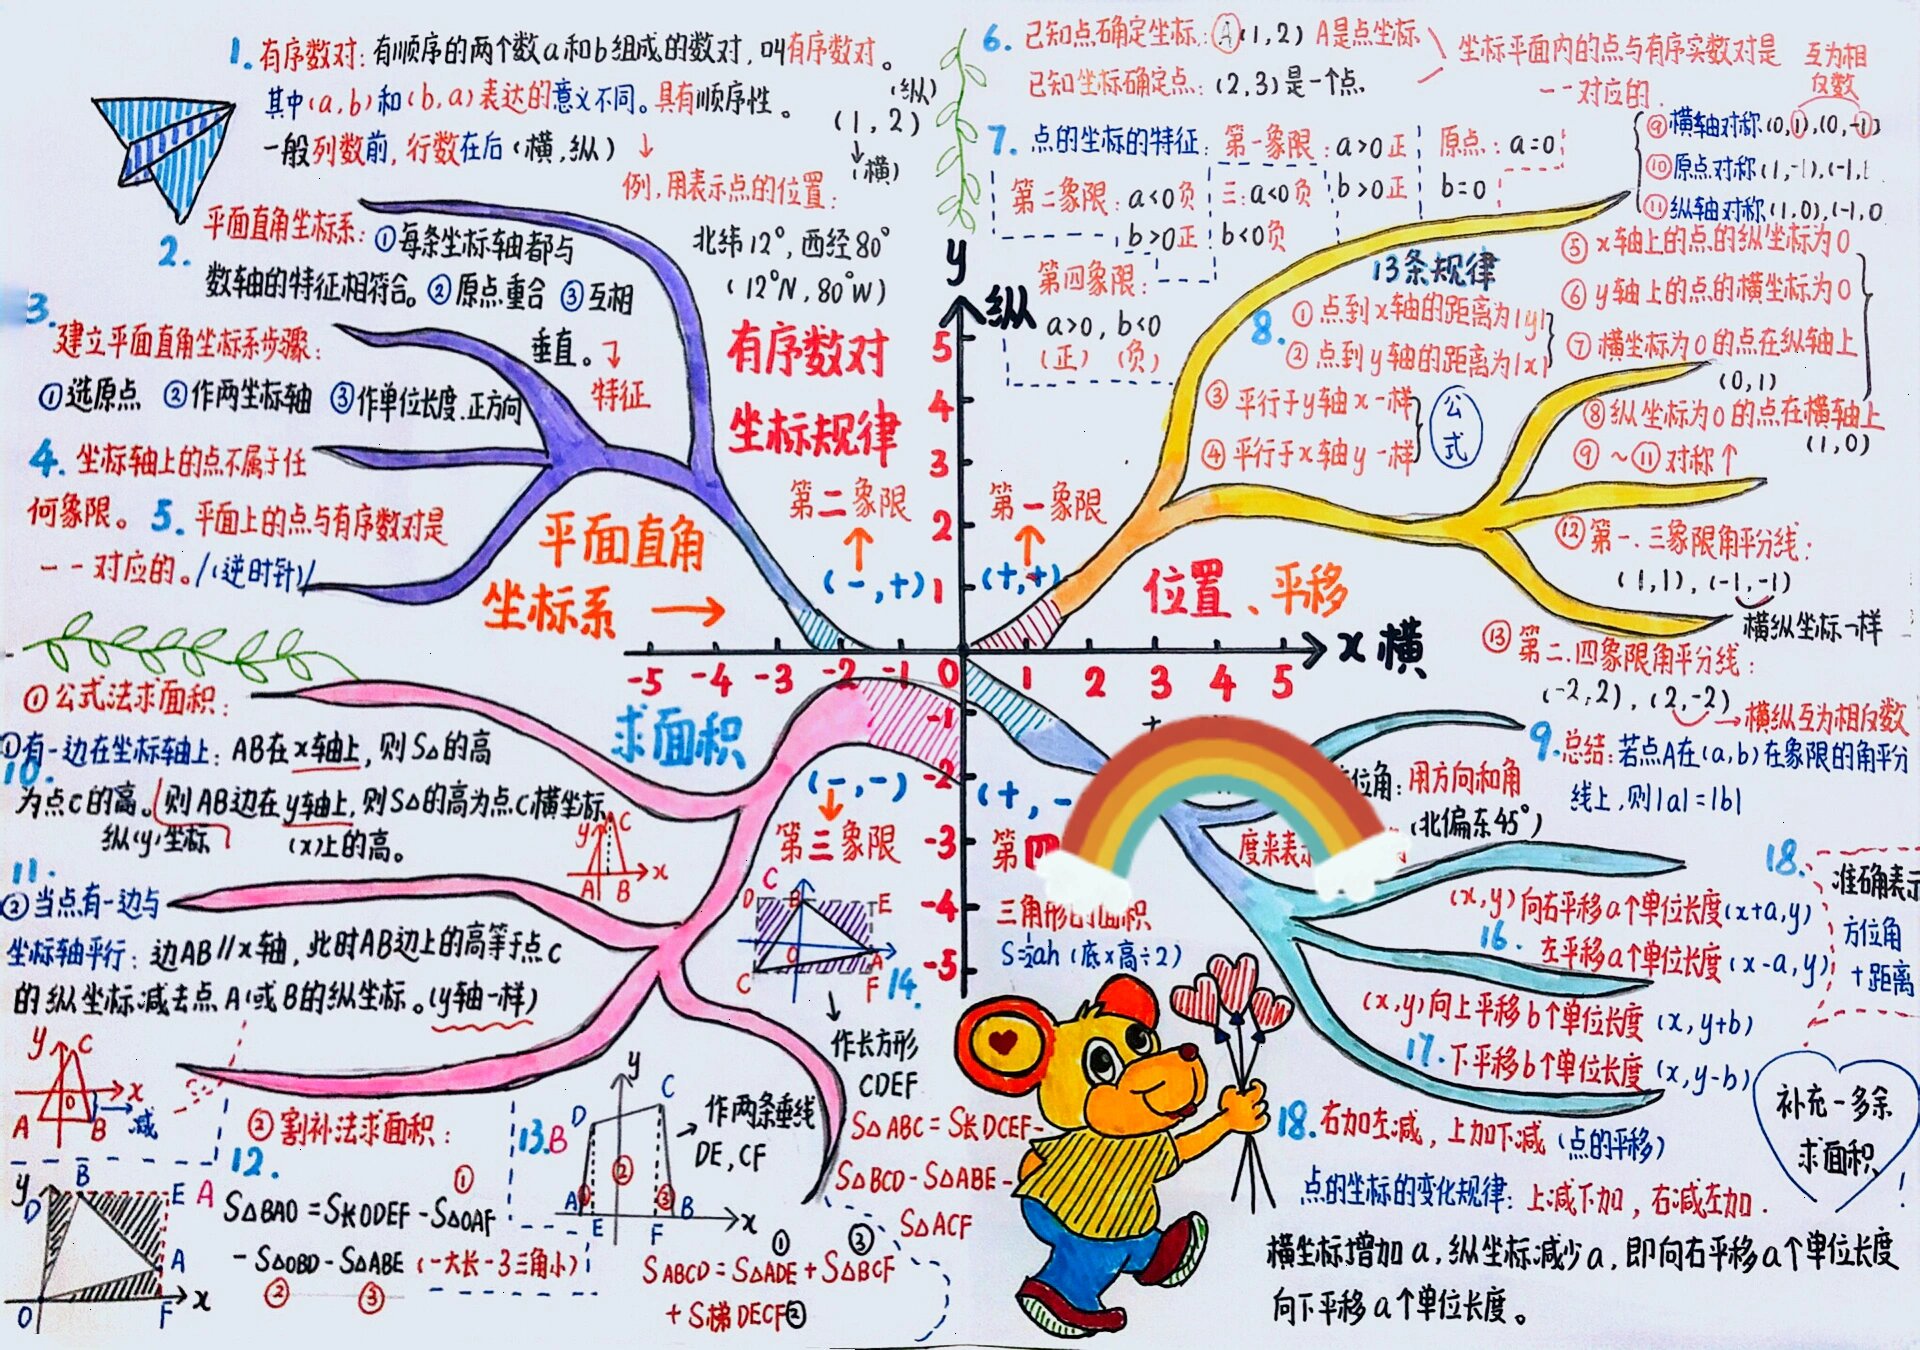 1. 有序数对:有顺序的两个数a和b组成的数对,叫有序数对。
其中(a,b)和(b,a)表达的意义不同。具有顺序性。
一般列数前,行数在后(横,纵)↓
(纵)
(1,2)
↓(横)
例,用表示点的位置:
北纬12°,西经80°
(12°N,80°W)
2. 平面直角坐标系:①每条坐标轴都与
数轴的特征相符合。②原点重合 ③互相
垂直。
特征
3. 建立平面直角坐标系步骤:
①选原点 ②作两坐标轴 ③作单位长度.正方向
4. 坐标轴上的点不属于任
何象限。 5. 平面上的点与有序数对是
一一对应的。/(逆时针)/
有序数对
坐标规律
平面直角
坐标系 →
第二象限
↑
(-,+)
第一象限
↑
(+,+)
y
纵
5
4
3
2
1
-5 -4 -3 -2 -1 0 1 2 3 4 5
x 横
-1
-2
-3
-4
-5
6. 已知点确定坐标:A(1,2) A是点坐标
已知坐标确定点:(2,3)是一个点.
坐标平面内的点与有序实数对是
一一对应的.
互为相
反数
7. 点的坐标的特征:第一象限:a>0正
b>0正
原点:a=0
b=0
第二象限:a<0负
b>0正
三:a<0负
b<0负
第四象限:
a>0, b<0
(正) (负)
⑨横轴对称(0,1),(0,-1)
⑩原点对称(1,-1),(-1,1
⑪纵轴对称(1,0),(-1,0
13条规律
8. ①点到x轴的距离为|y|
②点到y轴的距离为|x|
③平行于y轴x一样
④平行于x轴y一样
公
式
⑤x轴上的点的纵坐标为0
⑥y轴上的点的横坐标为0
⑦横坐标为0的点在纵轴上
(0,1)
⑧纵坐标为0的点在横轴上
(1,0)
⑨~⑪对称↑
⑫第一.三象限角平分线:
(1,1),(-1,-1)
横纵坐标一样
⑬第二.四象限角平分线:
(-2,2),(2,-2)
→横纵互为相反数
位置、平移
9. 总结:若点A在(a,b)在象限的角平分
线上,则|a|=|b|
求面积
①公式法求面积:
10. ①有一边在坐标轴上:AB在x轴上,则S△的高
为点C的高。则AB边在y轴上,则S△的高为点C横坐标
纵(y)坐标
(x)上的高。
y C
A B x
11. ②当点有一边与
坐标轴平行:边AB∥x轴,此时AB边上的高等于点C
的纵坐标减去点A或B的纵坐标。(y轴一样)
y C
x
0
A B 减
②割补法求面积:
12.
S△BAO=S长ODEF-S△OAF
①
-S△OBD-S△ABE(一大长-3三角小)
② ③
y
D B E A
A
O F x
13. B
y
D C
① ② ③
A E F B x
作两条垂线
DE,CF
① ③
SABCD=S△ADE+S△BCF
+S梯DECF②
(-,-)
↓
第三象限
C
D B E
O
A
C F
14.
↓
作长方形
CDEF
S△ABC=S长DCEF-
S△BCD-S△ABE-
S△ACF
(+,-
第四
三角形的面积
S=½ah(底×高÷2)
位角:用方向和角
度来表示
(北偏东45°)
(x,y)向右平移a个单位长度(x+a,y)
16. 左平移a个单位长度(x-a,y)
(x,y)向上平移b个单位长度(x,y+b)
17. 下平移b个单位长度(x,y-b)
18. 准确表示
方位角
+距离
18. 右加左减,上加下减(点的平移)
点的坐标的变化规律:上减下加,右减左加.
横坐标增加a,纵坐标减少a,即向右平移a个单位长度
向下平移a个单位长度。
补充一多余
求面积
!